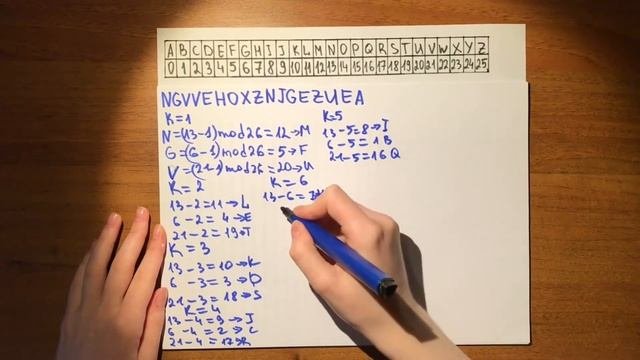 A B C D E F G H I J K L M N O P Q R S T U V W X Y Z
0 1 2 3 4 5 6 7 8 9 10 11 12 13 14 15 16 17 18 19 20 21 22 23 24 25
NGVVEHOXZNJGEZUEA
K=1
N=(13-1)mod26=12→M
G=(6-1)mod26=5→F
V=(21-1)mod26=20→U
K=2
13-2=11→L
6-2=4→E
21-2=19→T
K=3
13-3=10→K
6-3=3→D
21-3=18→S
K=4
13-4=9→J
6-4=2→C
21-4=17→R
K=5
13-5=8→I
6-5=1 B
21-5=16 Q
K=6
13-6=7→